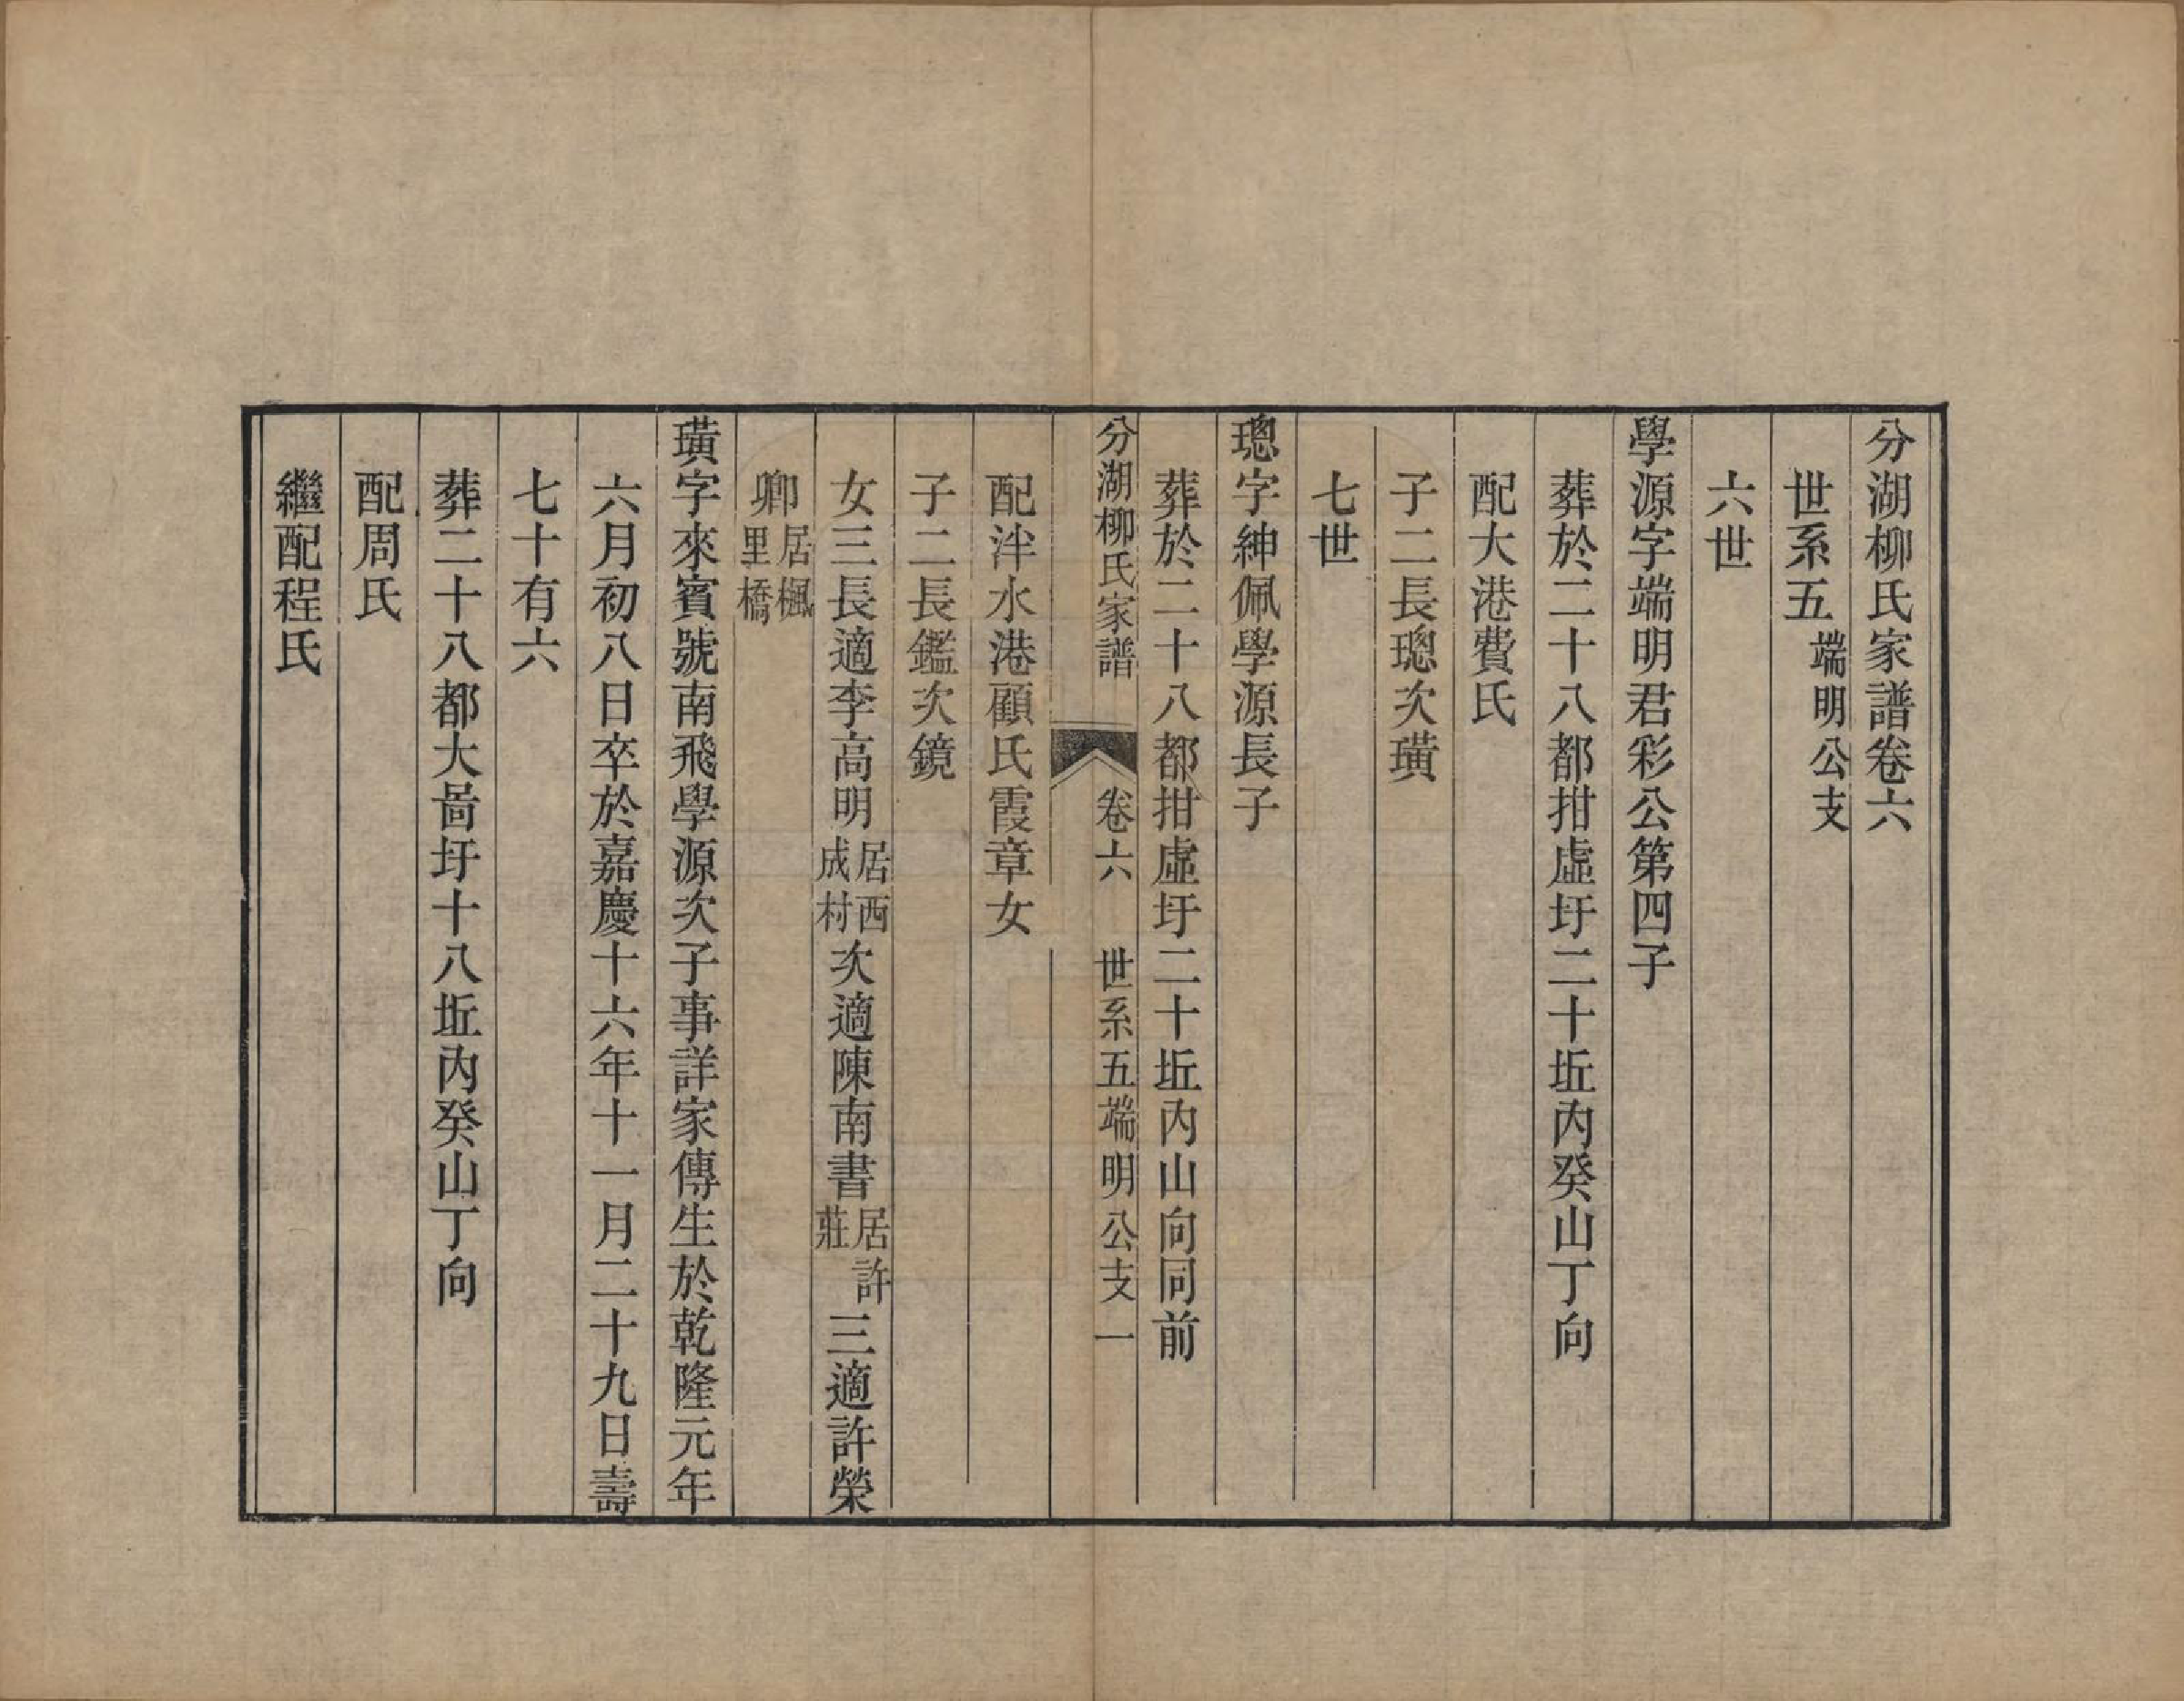 分湖柳氏家譜卷六
世系五端明公支
六世
學源字端明君彩公第四子
葬於二十八都拑虛圩二十坵內癸山丁向
配大港費氏
子二長璁次璜
七世
璁字紳佩學源長子
葬於二十八都拑虛圩二十坵內山向同前
分湖柳氏家譜 卷六 世系五端明公支 一
配泮水港顧氏霞章女
子二長鑑次鏡
女三長適李高明居西成村次適陳南書居許莊三適許榮
卿居楓里橋
璜字來賓號南飛學源次子事詳家傳生於乾隆元年
六月初八日卒於嘉慶十六年十一月二十九日壽
七十有六
葬二十八都大啚圩十八坵內癸山丁向
配周氏
繼配程氏